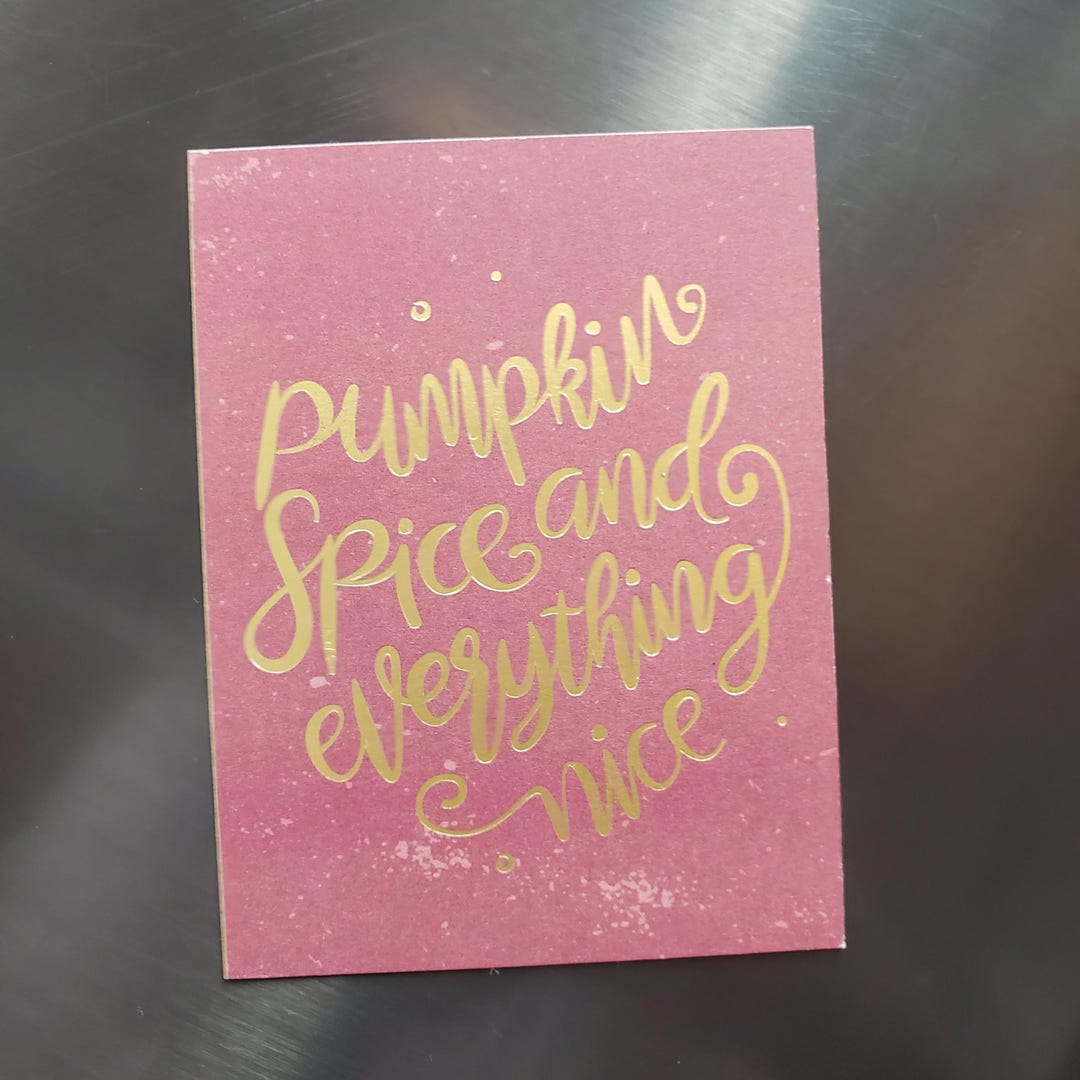 pumpkin
Spice and
everything
nice